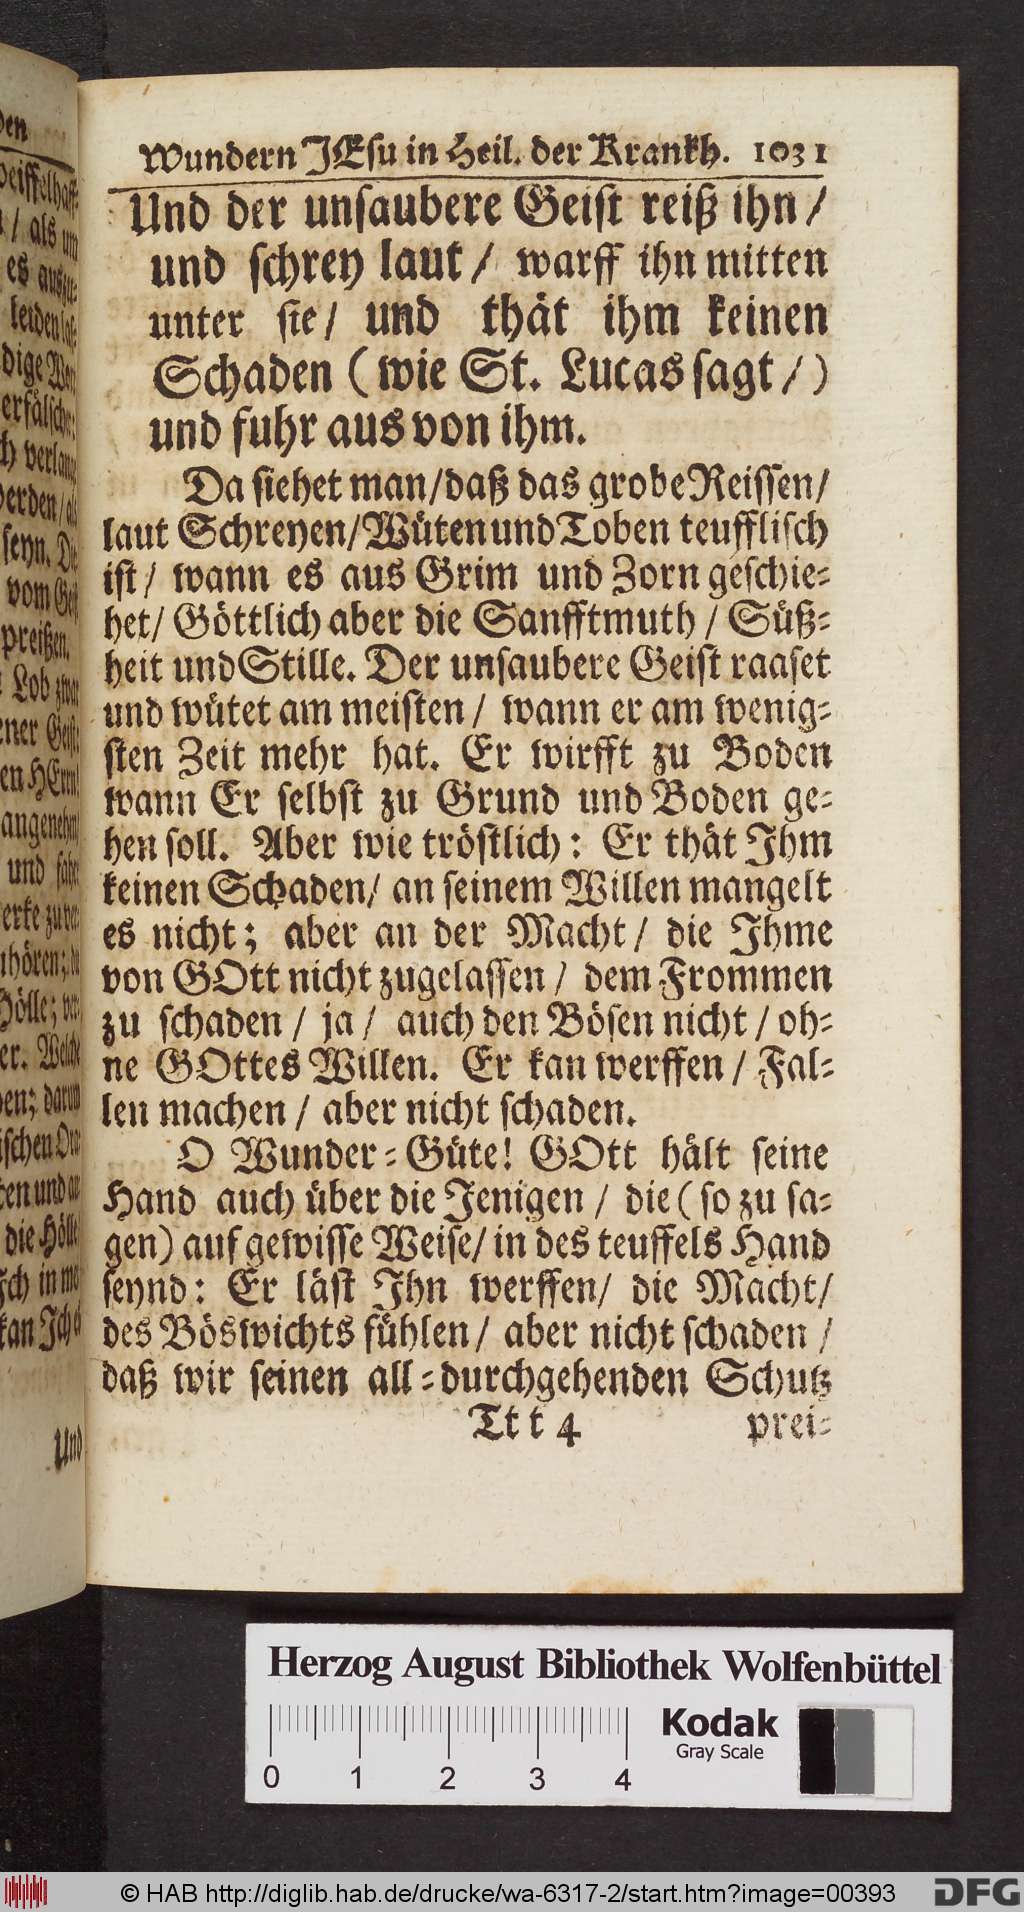 Wundern JEsu in Heil. der Krankh. 1031
Und der unsaubere Geist reiß ihn /
und schrey laut / warff ihn mitten
unter sie / und thät ihm keinen
Schaden ( wie St. Lucas sagt / )
und fuhr aus von ihm.
Da siehet man / daß das grobe Reissen /
laut Schreyen / Wüten und Toben teufflisch
ist / wann es aus Grim und Zorn geschie-
het / Göttlich aber die Sanfftmuth / Süß-
heit und Stille. Der unsaubere Geist raaset
und wütet am meisten / wann er am wenig-
sten Zeit mehr hat. Er wirfft zu Boden
wann Er selbst zu Grund und Boden ge-
hen soll. Aber wie tröstlich : Er thät Ihm
keinen Schaden / an seinem Willen mangelt
es nicht ; aber an der Macht / die Ihme
von GOtt nicht zugelassen / dem Frommen
zu schaden / ja / auch den Bösen nicht / oh-
ne GOttes Willen. Er kan werffen / Fal-
len machen / aber nicht schaden.
O Wunder-Güte! GOtt hält seine
Hand auch über die Jenigen / die ( so zu sa-
gen ) auf gewisse Weise / in des teuffels Hand
seynd : Er läst Ihn werffen / die Macht /
des Böswichts fühlen / aber nicht schaden /
daß wir seinen all-durchgehenden Schutz
Ttt 4 prei-
den
/ als um
es auszu-
erfälsche-
verlange
werden / als
seyn. Die
vom Geist
preißen.
Lob zwar
Geist
HErrn
angenehm
und
zuhören ;
Hölle ; ver-
er. Welche
darum
ten und
die Hölle
kan Ich
Und
Herzog August Bibliothek Wolfenbüttel
0 1 2 3 4
Kodak
Gray Scale
© HAB http://diglib.hab.de/drucke/wa-6317-2/start.htm?image=00393
DFG